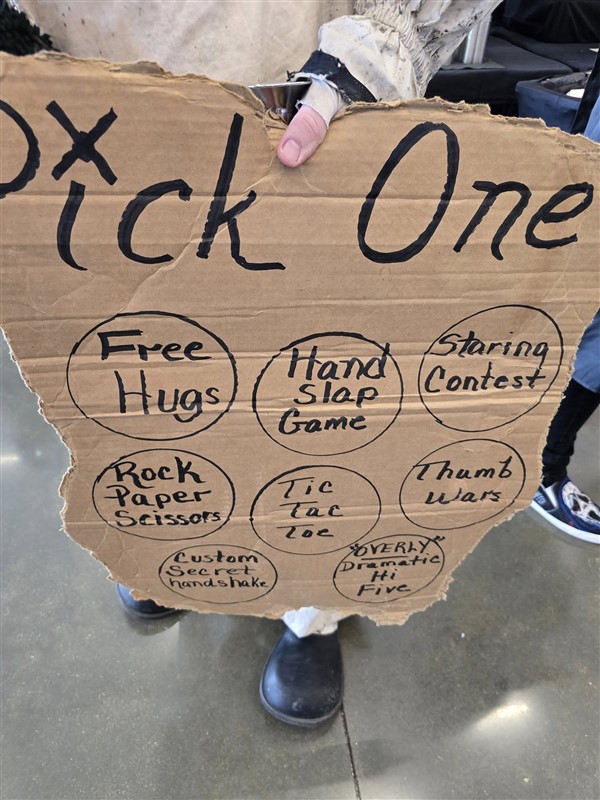 Pick One
Free
Hugs
Hand
Slap
Game
Staring
Contest
Rock
Paper
Scissors
Tic
Tac
Toe
Thumb
Wars
Custom
Secret
handshake
"OVERLY"
Dramatic
Hi
Five